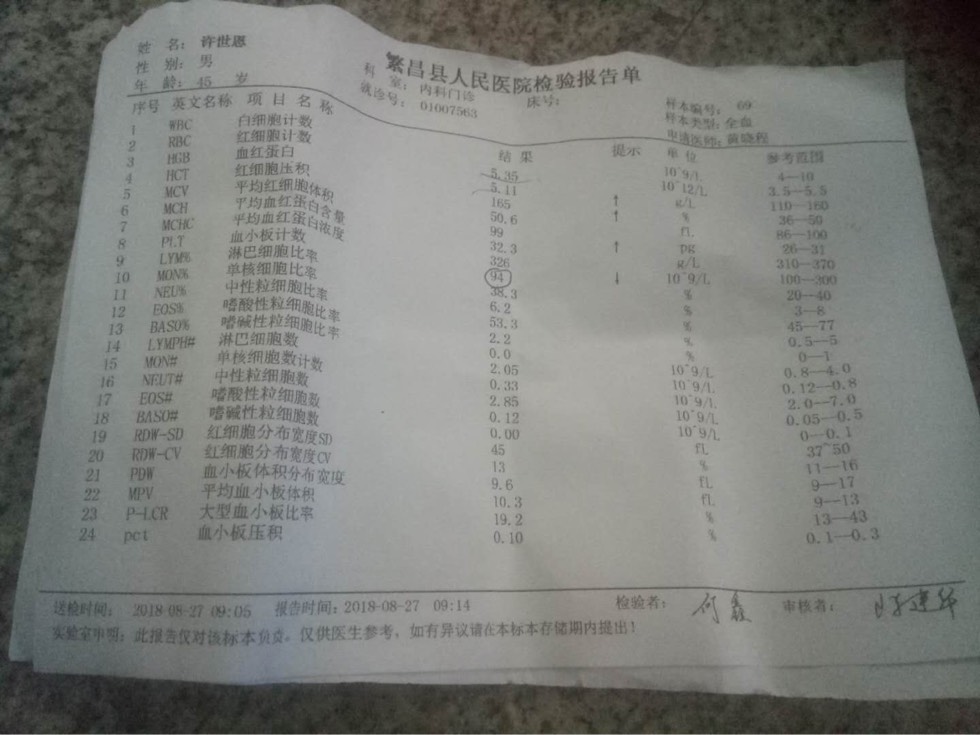 繁昌县人民医院检验报告单
姓 名: 许世恩
性 别: 男 科 室: 内科门诊 床号: 样本编号: 69
年 龄: 45 岁 就诊号: 01007563 样本类型: 全血
申请医师: 黄晓程
序号 英文名称 项 目 名 称 结 果 提示 单 位 参考范围
1 WBC 白细胞计数 5.35 10^9/L 4--10
2 RBC 红细胞计数 5.11 10^12/L 3.5--5.5
3 HGB 血红蛋白 165 ↑ g/L 110--160
4 HCT 红细胞压积 50.6 ↑ % 36--50
5 MCV 平均红细胞体积 99 fL 86--100
6 MCH 平均血红蛋白含量 32.3 ↑ pg 26--31
7 MCHC 平均血红蛋白浓度 326 g/L 310--370
8 PLT 血小板计数 94 ↓ 10^9/L 100--300
9 LYM% 淋巴细胞比率 38.3 % 20--40
10 MON% 单核细胞比率 6.2 % 3--8
11 NEU% 中性粒细胞比率 53.3 % 45--77
12 EOS% 嗜酸性粒细胞比率 2.2 % 0.5--5
13 BASO% 嗜碱性粒细胞比率 0.0 % 0--1
14 LYMPH# 淋巴细胞数 2.05 10^9/L 0.8--4.0
15 MON# 单核细胞数计数 0.33 10^9/L 0.12--0.8
16 NEUT# 中性粒细胞数 2.85 10^9/L 2.0--7.0
17 EOS# 嗜酸性粒细胞数 0.12 10^9/L 0.05--0.5
18 BASO# 嗜碱性粒细胞数 0.00 10^9/L 0--0.1
19 RDW-SD 红细胞分布宽度SD 45 fL 37~50
20 RDW-CV 红细胞分布宽度CV 13 % 11--16
21 PDW 血小板体积分布宽度 9.6 fL 9--17
22 MPV 平均血小板体积 10.3 fL 9--13
23 P-LCR 大型血小板比率 19.2 % 13--43
24 pct 血小板压积 0.10 % 0.1--0.3
送检时间: 2018-08-27 09:05 报告时间: 2018-08-27 09:14 检验者: 何鑫 审核者:
实验室申明: 此报告仅对该标本负责。仅供医生参考, 如有异议请在本标本存储期内提出!